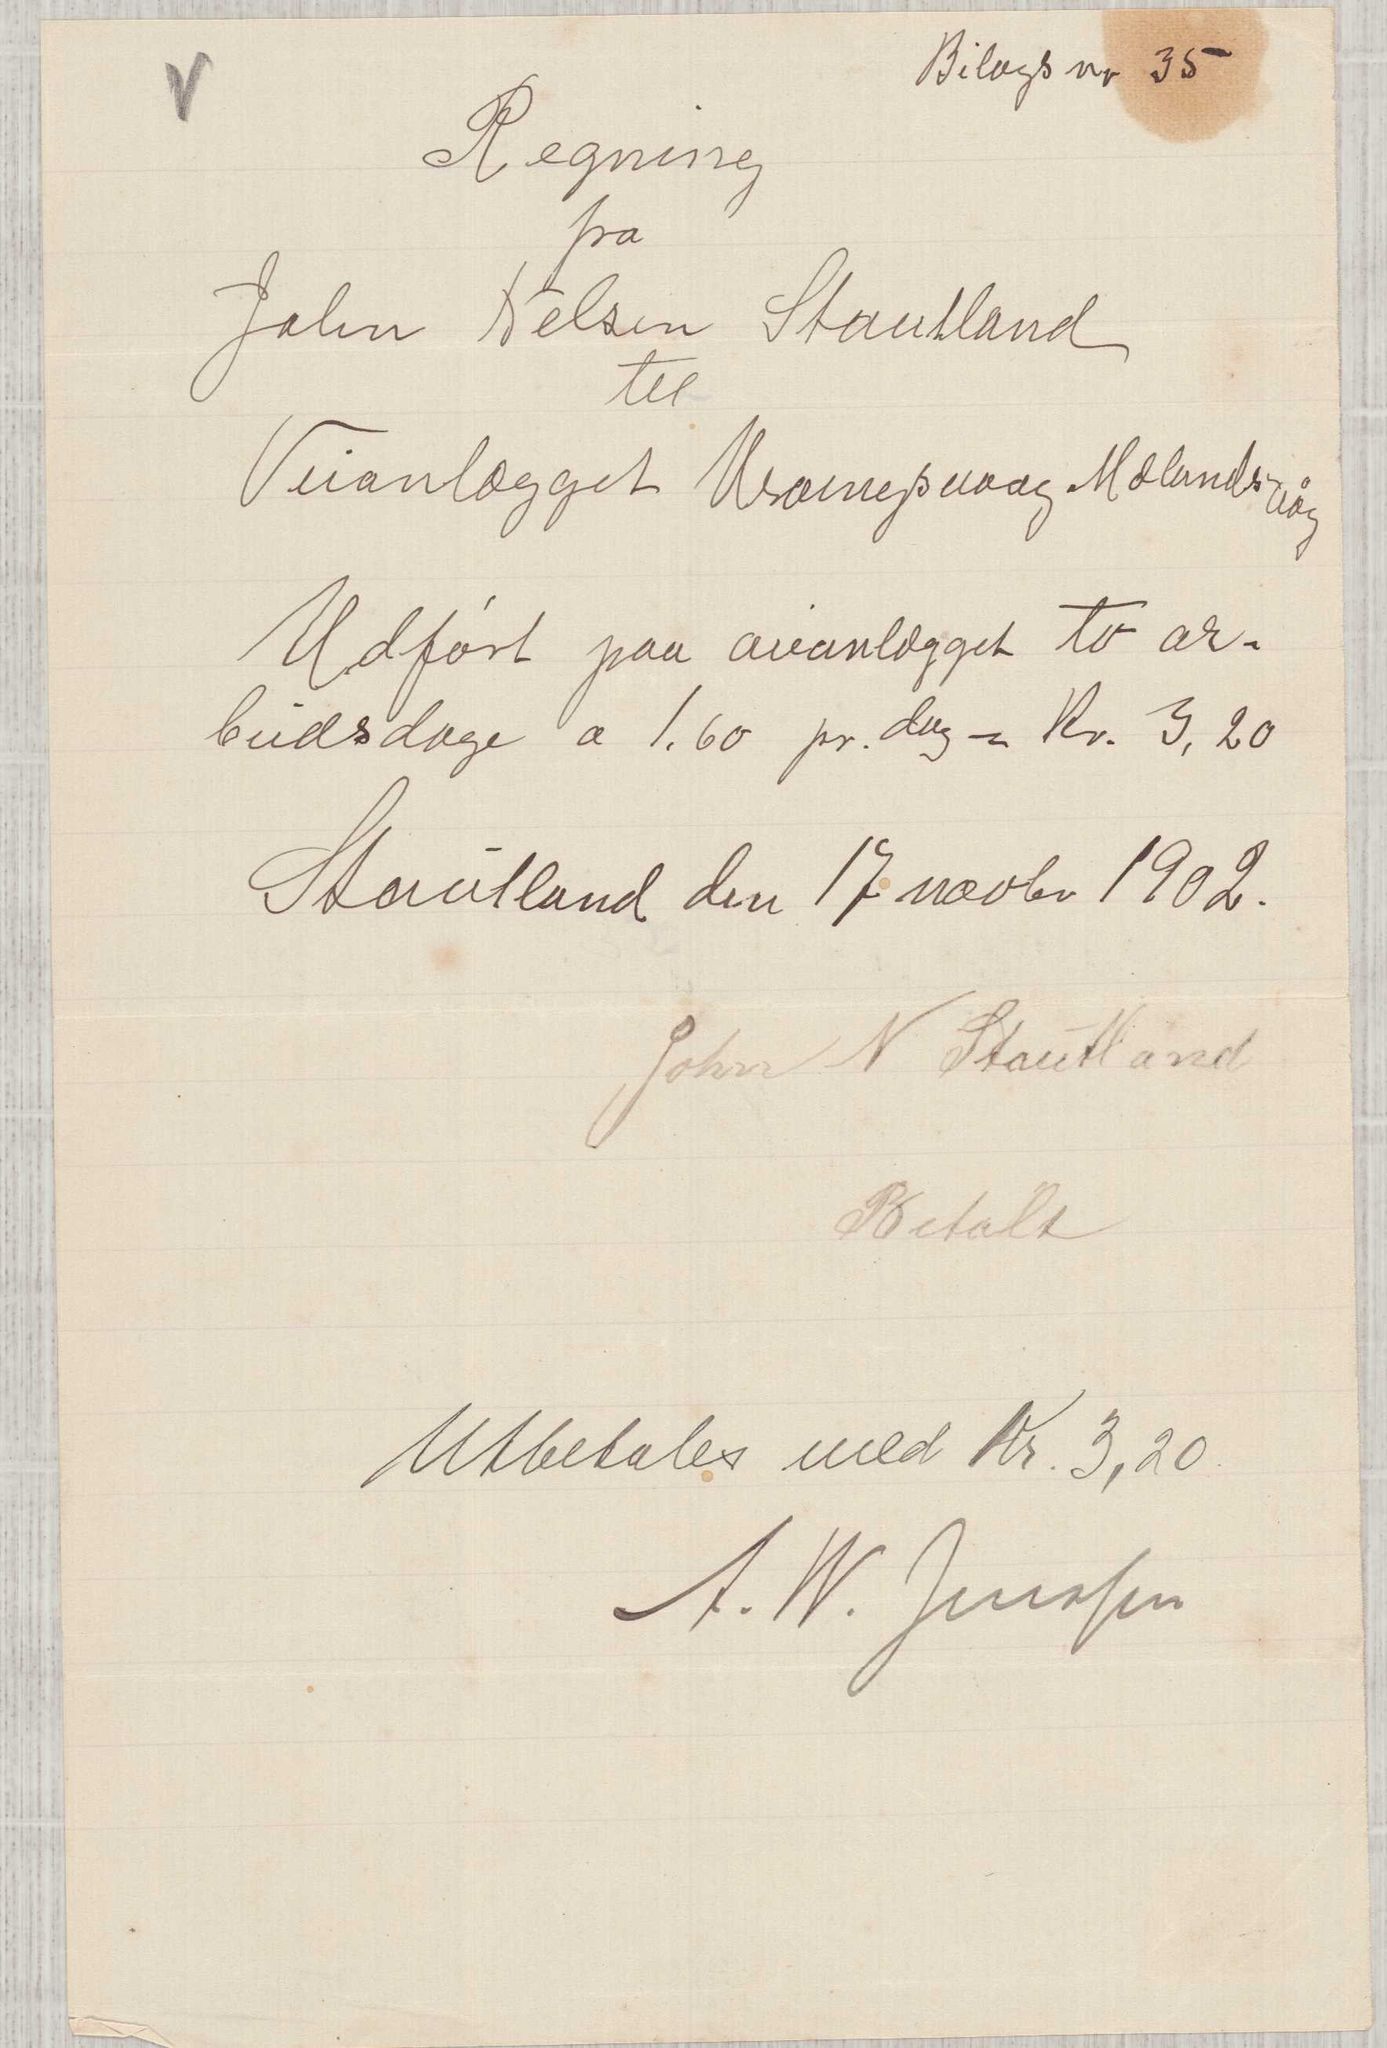 V
Bilags nr 35
Regning
fra
John Nelsen Stautland
til
Veianlægget Urangsvaag Mælandsvåg
Udført paa veianlægget to ar-
beidsdage a 1.60 pr. dag = Kr. 3,20
Stautland den 17 novbr 1902.
John N Stautland
Betalt
Utbetales med Kr. 3,20.
A. W. Jenssen